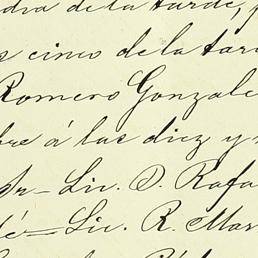 media de la tarde, p
s cinco de la tar
Romero Gonzale
bre á las diez y
Sr— Lic. D. Rafa
Lic. R. Mar